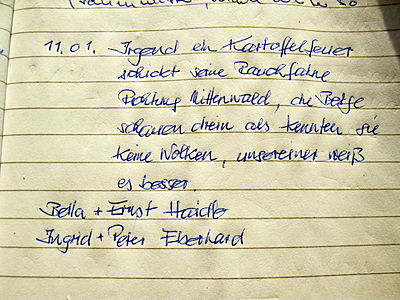 11.01. Irgend ein Kartoffelfeuer
schickt seine Rauchfahne
Richtung Mittenwald, die Berge
schauen drein als kennten sie
keine Wolken, unsereiner weiß
es besser
Bella + Ernst Haidle
Ingrid + Peter Eberhard